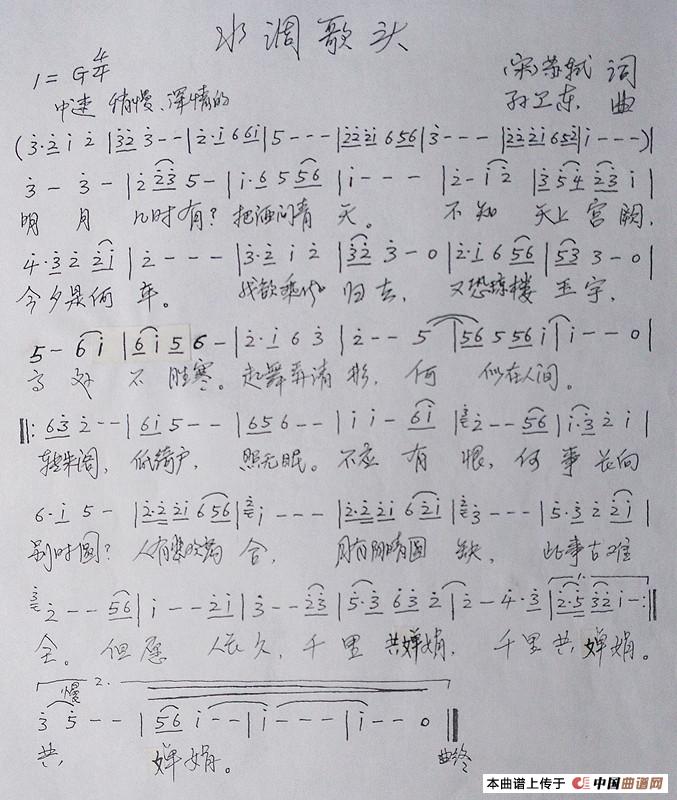 水调歌头
1=G 4/4
(宋)苏轼 词
中速 稍慢、深情的
孙卫东 曲
(3·2 1 2 |32 3 - - |2·1 6 61 |5 - - - |2221 6 56 |3 - - - |2221 652 |1 - - -)|
3 - 3 - |2 23 5 - |1·6 5 56 |1 - - - |2 - 1 2 |3 5 4 23 1 |
明 月 几时有？把酒问青 天。 不 知 天上 宫 阙，
4·3 2 21 |2 - - - |3·2 1 2 |32 3 - 0 |2·1 6 56 |53 3 - 0 |
今夕是何 年。 我欲乘 归去， 又恐琼楼 玉宇，
5 - 6 1 |6 1 5 6 - |2·1 6 3 |2 - - 5 |56 5 56 1 |1 - - 0 |
高 处 不 胜寒。起舞弄清 影， 何 似在人间。
‖: 63 2 - - |61 5 - - |65 6 - - |1 1 - 61 |2 - - 56 |1·3 2 1 |
转朱阁， 低绮户， 照无眠。不应 有 恨，何 事 长向
6·1 5 - |2·2 21 6 56 |1 - - - |2·2 21 6 21 |3 - - - |5·3 2 21 |
别时圆？ 人有悲欢离 合， 月有阴晴圆 缺， 此事古难
2 - - 56 |1 - - 21 |3 - - 23 |5·3 63 2 |2 - 4·3 |2·5 32 1 - :‖
全。但愿 人长久，千里 共婵娟， 千里 共 婵娟。
慢 2.
3 5 - - |56 1 - - |1 - - - |1 - - 0 ‖
共， 婵娟。 曲终
本曲谱上传于 中国曲谱网